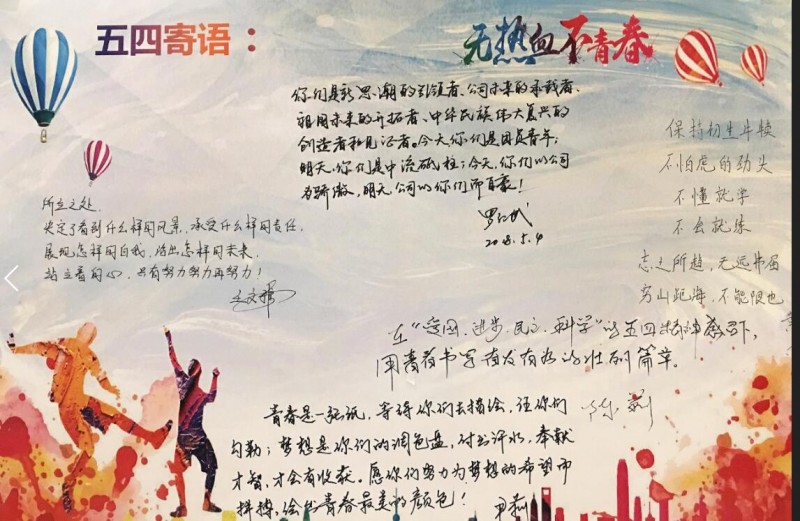 五四寄语：
无热血不青春
你们是新思潮的引领者、公司未来的承载者、
祖国未来的开拓者、中华民族伟大复兴的
创造者和见证者。今天你们是团员青年；
明天，你们是中流砥柱；今天，你们以公司
为骄傲，明天，公司以你们而自豪！
2018.5.4
所立之处，
决定了看到什么样的风景，承受什么样的责任，
展现怎样的自我，活出怎样的未来。
站立着的心，只有努力努力再努力！
保持初生牛犊
不怕虎的劲头
不懂就学
不会就练
志之所趋，无远弗届
穷山距海，不能限也
在“爱国、进步、民主、科学”的五四精神感召下，
用青春书写有声有色的壮丽篇章。
青春是一张纸，等待你们去描绘，任你们
勾勒；梦想是你们的调色盘，付出汗水，奉献
才智，才会有收获。愿你们努力为梦想的希望而
拼搏，绘出青春最美的颜色！